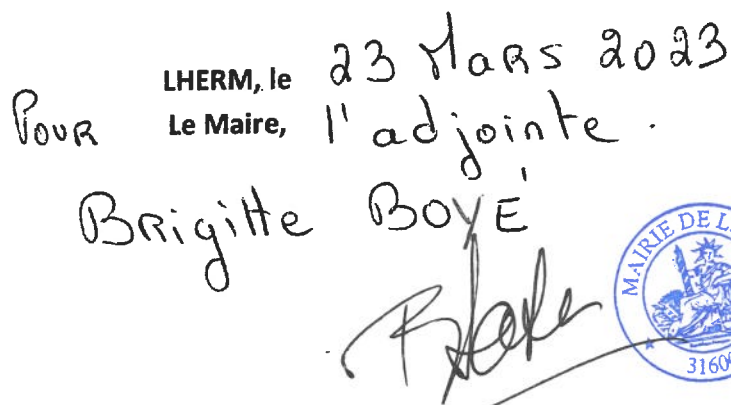 LHERM, le 23 Mars 2023
Pour Le Maire, l'adjointe.
Brigitte BOYÉ
MAIRIE DE L
3160